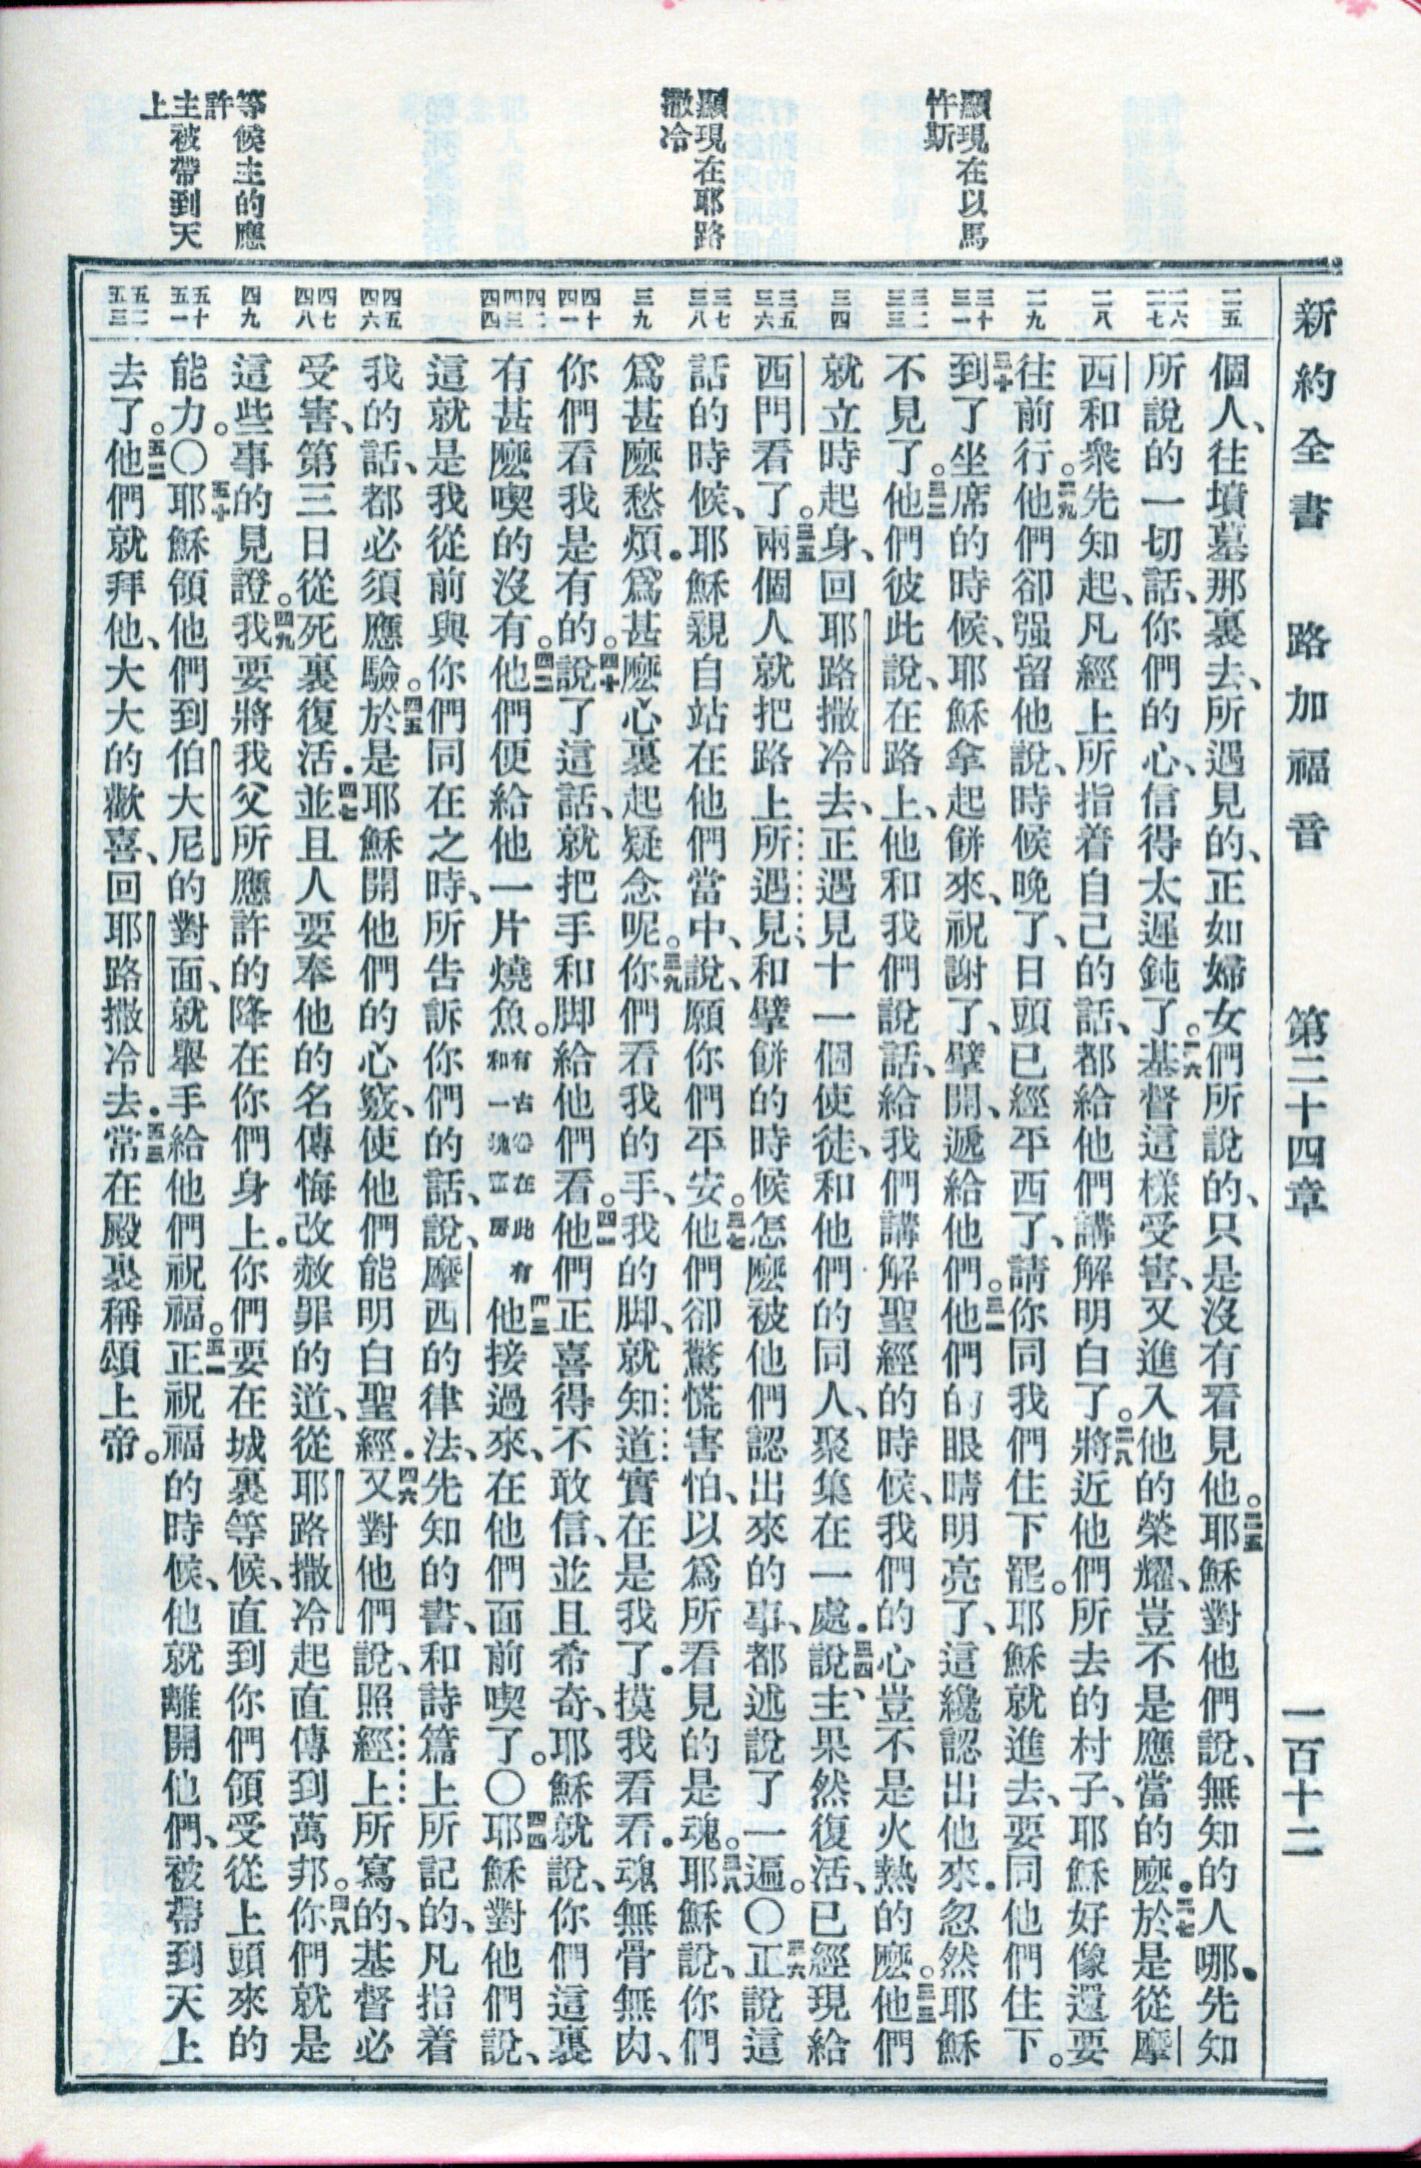 新約全書 路加福音 第二十四章 一百十二
顯現在以馬
忤斯
顯現在耶路
撒冷
等候主的應
許
主被帶到天
上
二五
二六
二七
二八
二九
三十
三一
三二
三三
三四
三五
三六
三七
三八
三九
四十
四一
四二
四三
四四
四五
四六
四七
四八
四九
五十
五一
五二
五三
個人、往墳墓那裏去、所遇見的、正如婦女們所說的、只是沒有看見他。二五耶穌對他們說、無知的人哪、先知
所說的一切話、你們的心、信得太遲鈍了。二六基督這樣受害、又進入他的榮耀、豈不是應當的麼。二七於是從摩
西和衆先知起、凡經上所指着自己的話、都給他們講解明白了。二八將近他們所去的村子、耶穌好像還要
往前行。二九他們卻强留他說、時候晚了、日頭已經平西了、請你同我們住下罷。耶穌就進去、要同他們住下。
三十到了坐席的時候、耶穌拿起餅來、祝謝了、擘開、遞給他們。三一他們的眼睛明亮了、這纔認出他來．忽然耶穌
不見了。三二他們彼此說、在路上、他和我們說話、給我們講解聖經的時候、我們的心豈不是火熱的麼。三三他們
就立時起身、回耶路撒冷去、正遇見十一個使徒、和他們的同人、聚集在一處．三四說、主果然復活、已經現給
西門看了。三五兩個人就把路上所遇見、和擘餅的時候怎麼被他們認出來的事、都述說了一遍。〇三六正說這
話的時候、耶穌親自站在他們當中、說、願你們平安。三七他們卻驚慌害怕、以爲所看見的是魂。三八耶穌說、你們
爲甚麼愁煩．爲甚麼心裏起疑念呢。三九你們看我的手、我的脚、就知道實在是我了．摸我看看．魂無骨無肉、
你們看我是有的。四十說了這話、就把手和脚給他們看。四一他們正喜得不敢信、並且希奇、耶穌就說、你們這裏
有甚麼喫的沒有。四二他們便給他一片燒魚。有古卷在此有和一塊蜜房四三他接過來、在他們面前喫了。〇四四耶穌對他們說、
這就是我從前與你們同在之時、所告訴你們的話、說、摩西的律法、先知的書、和詩篇上所記的、凡指着
我的話、都必須應驗。四五於是耶穌開他們的心竅、使他們能明白聖經．四六又對他們說、照經上所寫的、基督必
受害、第三日從死裏復活．四七並且人要奉他的名傳悔改赦罪的道、從耶路撒冷起直傳到萬邦。四八你們就是
這些事的見證。四九我要將我父所應許的降在你們身上．你們要在城裏等候、直到你們領受從上頭來的
能力。〇五十耶穌領他們到伯大尼的對面、就舉手給他們祝福。五一正祝福的時候、他就離開他們、被帶到天上
去了。五二他們就拜他、大大的歡喜、回耶路撒冷去．五三常在殿裏稱頌上帝。